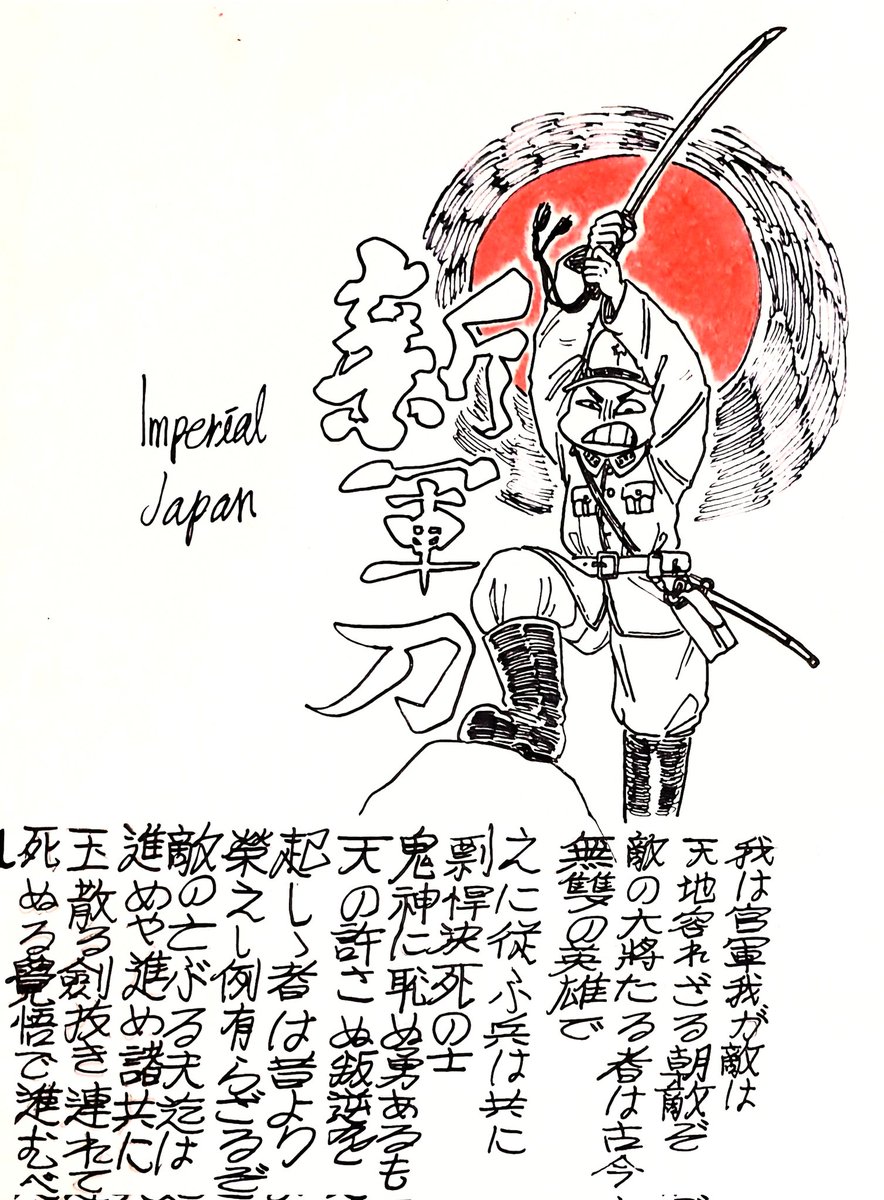 Imperial
Japan
新軍刀
我は官軍我が敵は
天地容れざる朝敵ぞ
敵の大將たる者は古今
無雙の英雄で
之に従ふ兵は共に
剽悍決死の士
鬼神に恥ぬ勇あるも
天の許さぬ叛逆を
起しゝ者は昔より
榮えし例有らざるぞ
敵の亡ぶる夫迄は
進めや進め諸共に
玉散る剣抜き連れて
死ぬる覺悟で進むべ